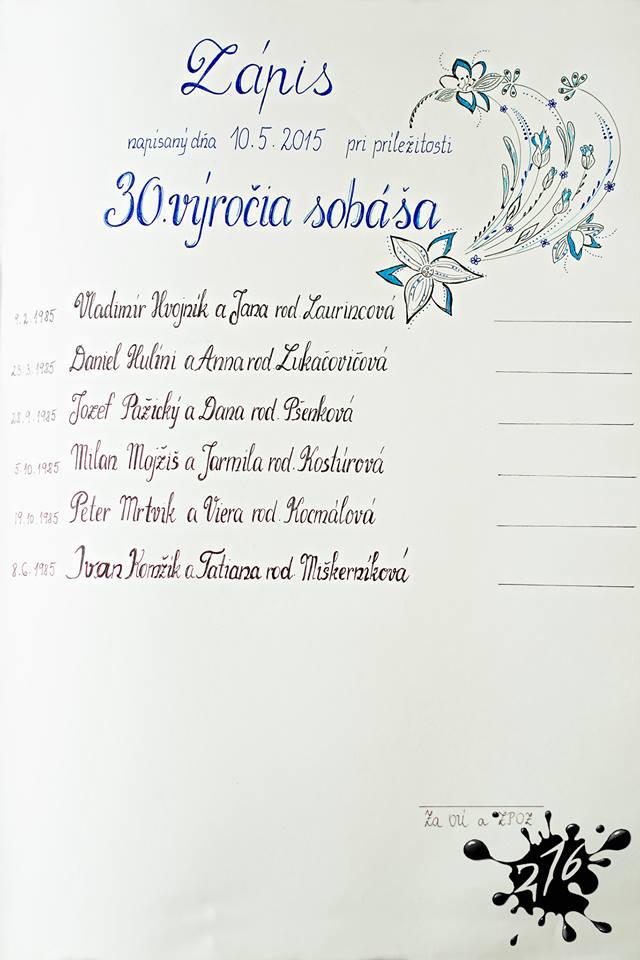 Zápis
napísaný dňa 10.5.2015 pri príležitosti
30.výročia sobáša
9.2.1985 Vladimír Hvojník a Jana rod. Laurincová
23.3.1985 Daniel Hulíni a Anna rod. Lukačovičová
28.9.1985 Jozef Pažický a Dana rod. Pšenková
5.10.1985 Milan Mojžiš a Jarmila rod. Kostúrová
19.10.1985 Peter Mrtvik a Viera rod. Kocmálová
8.6.1985 Ivan Komžík a Tatiana rod. Miškerníková
Za OÚ a ZPOZ
276